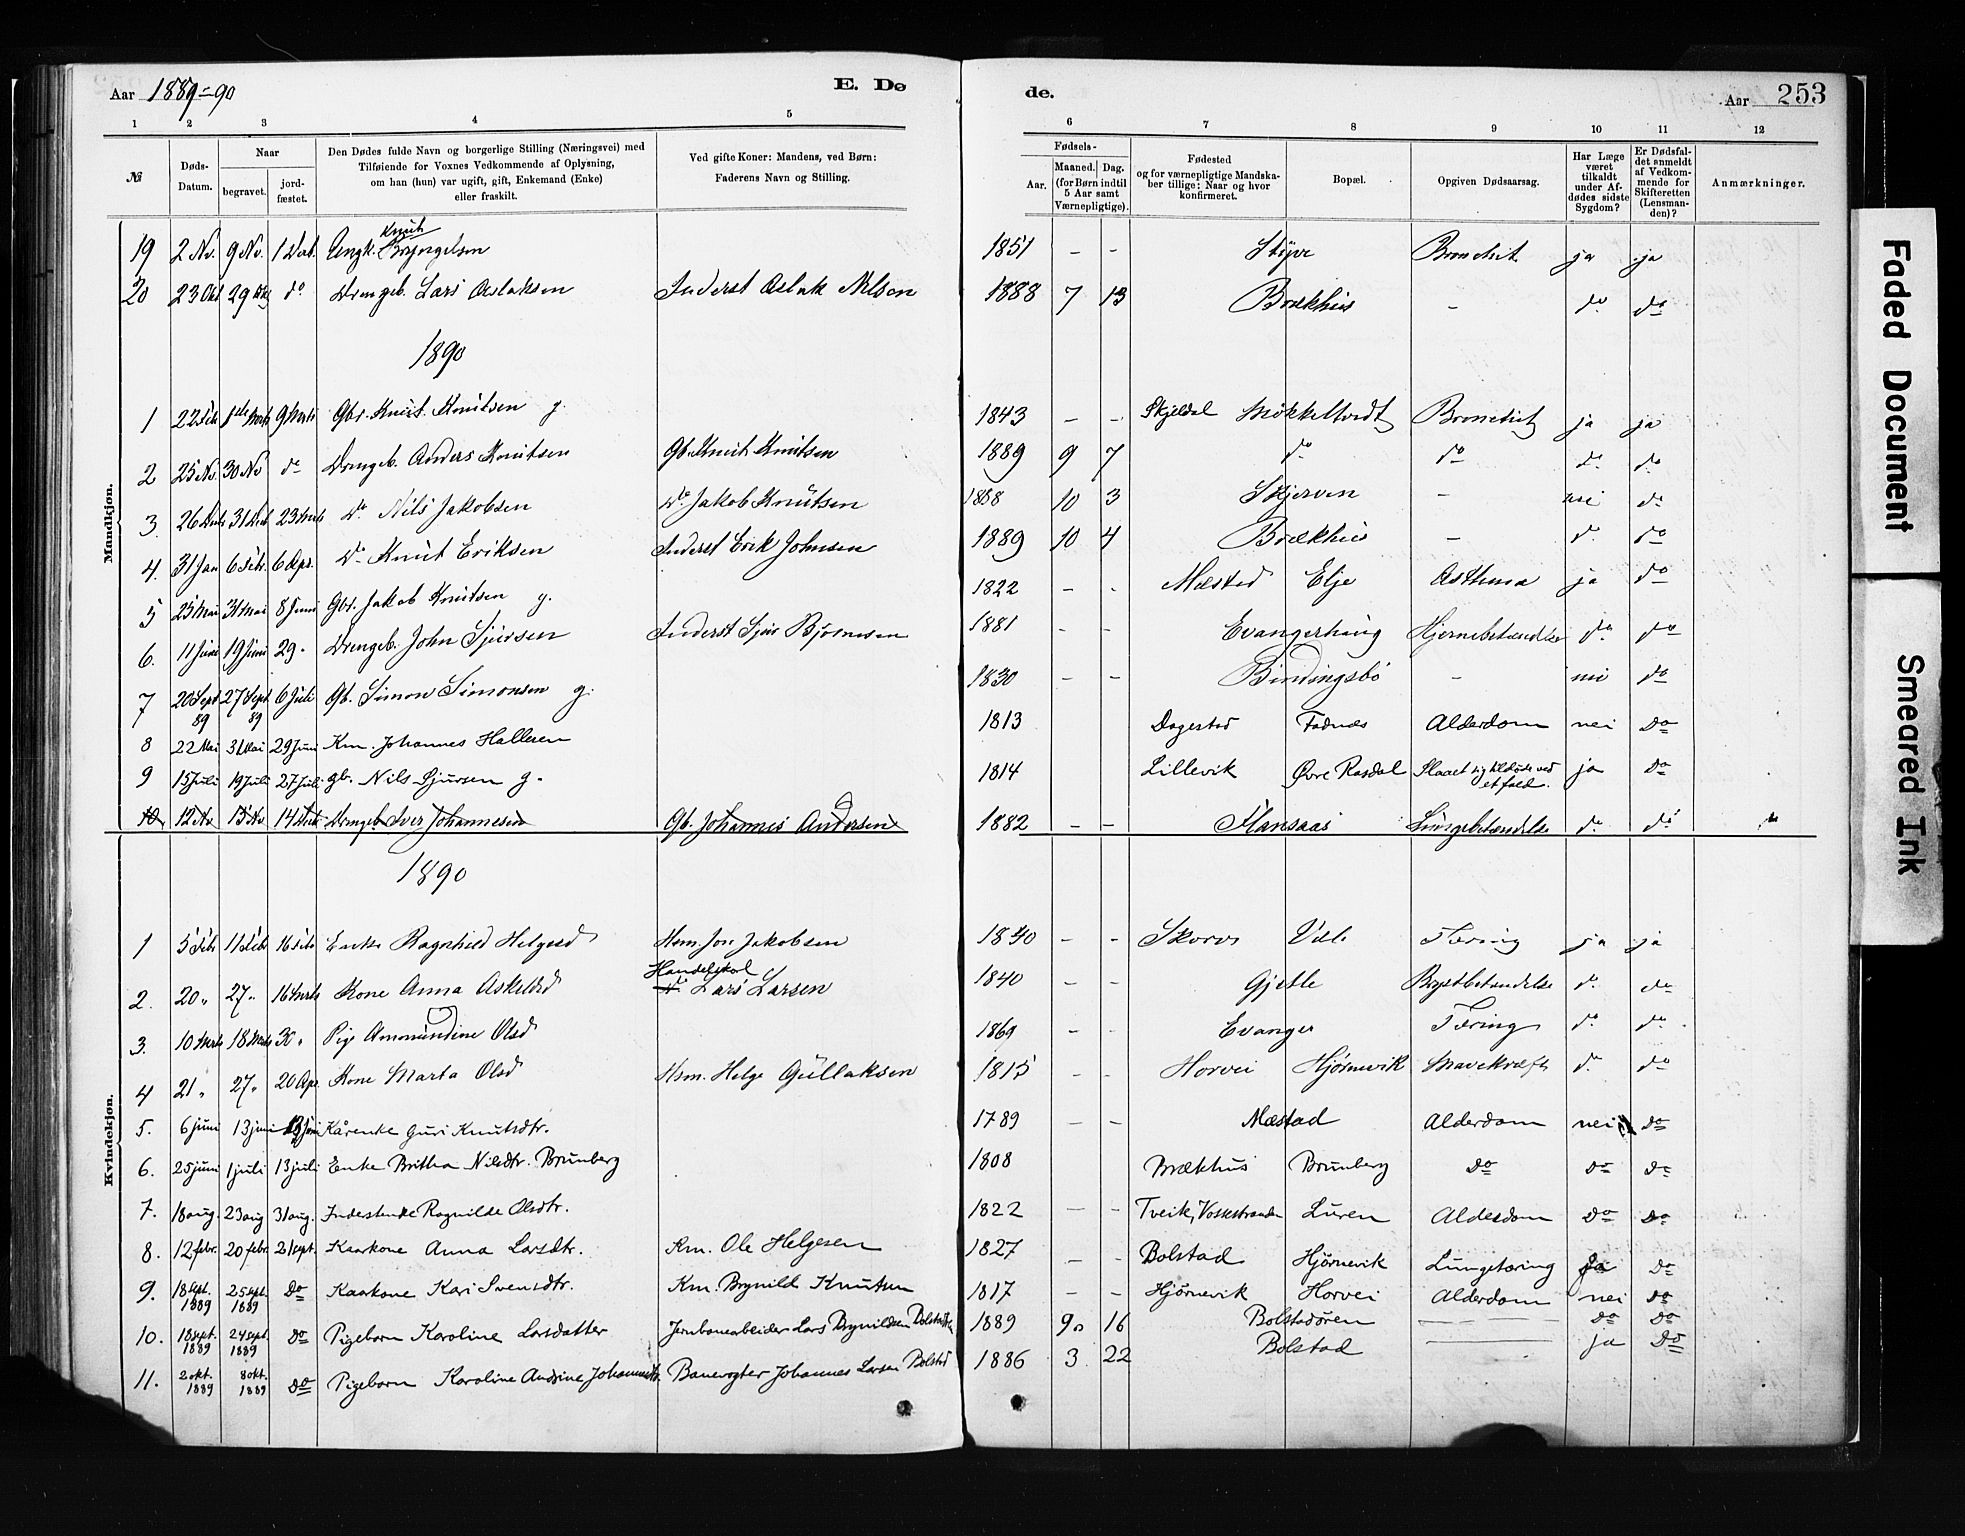 Aar 1889-90 E. Dø
de. Aar 253
1 2 3 4 5 6 7 8 9 10 11 12
№ Døds-Datum. Naar begravet. jord-fæstet. Den Dødes fulde Navn og borgerlige Stilling (Næringsvei) med Tilføiende for Voxnes Vedkommende af Oplysning, om han (hun) var ugift, gift, Enkemand (Enke) eller fraskilt. Ved gifte Koner: Mandens, ved Børn: Faderens Navn og Stilling. Fødsels- Aar. Maaned. Dag. (for Børn indtil 5 Aar samt Værnepligtige). Fødested og for værnepligtige Mandskaber tillige: Naar og hvor konfirmeret. Bopæl. Opgiven Dødsaarsag. Har Læge været tilkaldt under Afdødes sidste Sygdom? Er Dødsfaldet anmeldt af Vedkommende for Skifteretten (Lensmanden)? Anmærkninger.
Mandkjøn.
19 2 Nv. 9 Nv. 1 Dcb. Ungk. Knut Bryngelsen 1851 - - Styve Bronchit ja ja
20 23 Okt 29 Okt do Drengeb. Lars Aslaksen Inderst Aslak Nilsen 1888 7 13 Brækhus - do do
1890
1 22 Feb 1ste Marts 9 Marts Gbr. Knut Knutsen g. 1843 - - Skjeldal Mökkeltvedt Bronchit ja ja
2 25 Nv. 30 Nv do Drengeb. Anders Knutsen Gb. Knut Knutsen 1889 9 7 do do do do
3. 26 Dcb 31 Dcb 23 Marts Do Nils Jakobsen Do Jakob Knutsen 1888 10 3 Skjerven - nei do
4. 31 Jan 6 Febr. 6 Apr. Do Knut Eriksen Inderst Erik Johnsen 1889 10 4 Brækhus - do do
5 25 Mai 31 Mai 8 Juni Gbr. Jakob Knutsen g. 1822 - - Mæstad Elje Asthma ja do
6. 11 Juni 19 Juni 29 " Drengeb. John Sjursen Inderst Sjur Bjørnesen 1881 - - Evangerhaug Hjernebetændelse do do
7 20 Sept 89 27 Sept 89 6 Juli Gb. Simon Simonsen g. 1830 - - Bindingsbø - nei do
8 22 Mai 31 Mai 29 Juni Km. Johannes Hallesen 1813 Dagestad Fadnæs Alderdom nei Do
9 15 Juli 19 Juli 27 Juli gb. Nils Sjursen g. 1814 Lillevik Øvre Rasdal Slaaet sig tildøde ved et fald. ja do
10. 12 Nv 15 Nv 14 Dcb Drengeb Iver Johannesen Gb. Johannes Andersen 1882 - - Flansaas Lungebetændelse do do
Kvindekjøn.
1890
1 5 Feb 11 Feb 16 Feb Enke Ragnhild Helgesd Hsm. Jon Jakobsen 1840 - - Skorve Vele Tæring ja ja
2. 20 " 27 " 16 Marts Kone Anna Askeldsd Handelskarl Do Lars Larsen 1840 - - Gjelle Brystbetændelse do do
3. 10 Marts 18 Marts 30 " Pige Amundine Olsd 1869 - - Evanger Tæring do do
4 21 " 27 " 20 Apr. Kone Marta Olsd Hsm. Helge Gullaksen 1815 - - Horvei Hjørnevik Mavekræft do do
5. 6 juni 13 juni 13 Juni Kårenke Guri Knutsdtr. 1789 - - Mæstad Alderdom nei do
6. 25 juni 1 juli 13 juli Enke Britha Nilsdtr. Brunberg 1808 Brækhus Brunberg do do do
7. 18 aug. 23 aug 31 aug. Inderstenke Ragnilde Olsdtr. 1822 - - Tveit, Vossestranden Luren Alderdom do do
8. 12 febr. 20 febr. 21 sept. Kaarkone Anna Larsdtr. Km. Ole Helgesen 1827 - - Bolstad Hjørnevik Lungetæring ja do
9. 18 sept. 1889 25 sept. 1889 Do Kaarkone Kari Svensdtr. Km. Brynild Knutsen 1817 - - Hjørnevik Horvei Alderdom nei do
10. 18 sept. 1889 24 sept. 1889 Do Pigebarn Karoline Larsdatter Jernbanearbeider Lars Brynildsen Bolstad 1889 9 16 Bolstadøren - do do
11. 2 okt. 1889 8 okt. 1889 Do Pigebarn Karoline Andrine Johannesdtr. Banevogter Johannes Larsen Bolstad 1886 3 22 Bolstad - ja do
Faded Document
Smeared Ink